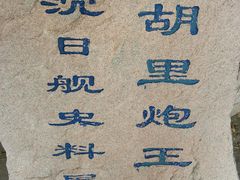 胡里炮王
沉日舰史料